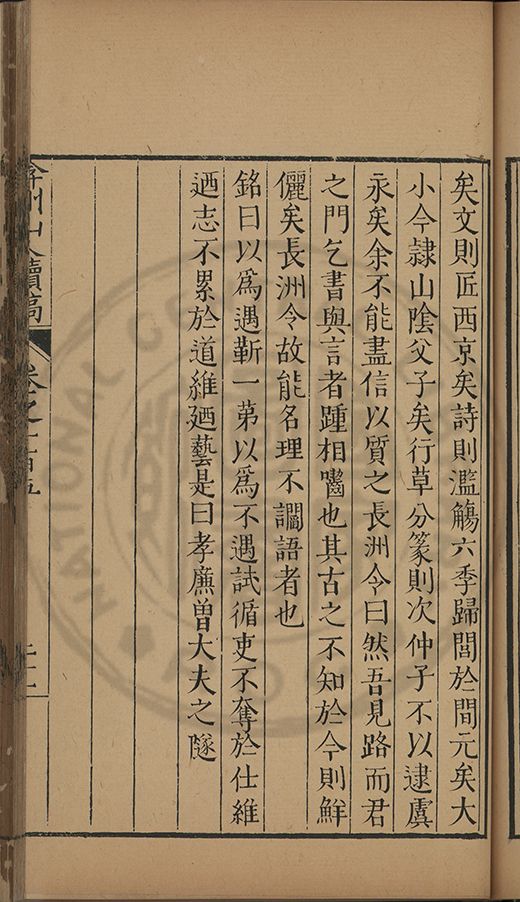 矣文則匠西京矣詩則濫觴六季歸閭於開元矣大
小今隷山陰父子矣行草分篆則次仲子不以逮虞
永矣余不能盡信以質之長洲令曰然吾見路而君
之門乞書與言者踵相嚙也其古之不知於今則鮮
儷矣長洲令故能名理不讕語者也
銘曰以爲遇靳一苐以爲不遇試循吏不奪於仕維
迺志不累於道維廼藝是曰孝廉曾大夫之隧
弇州山人續稿
卷之一百